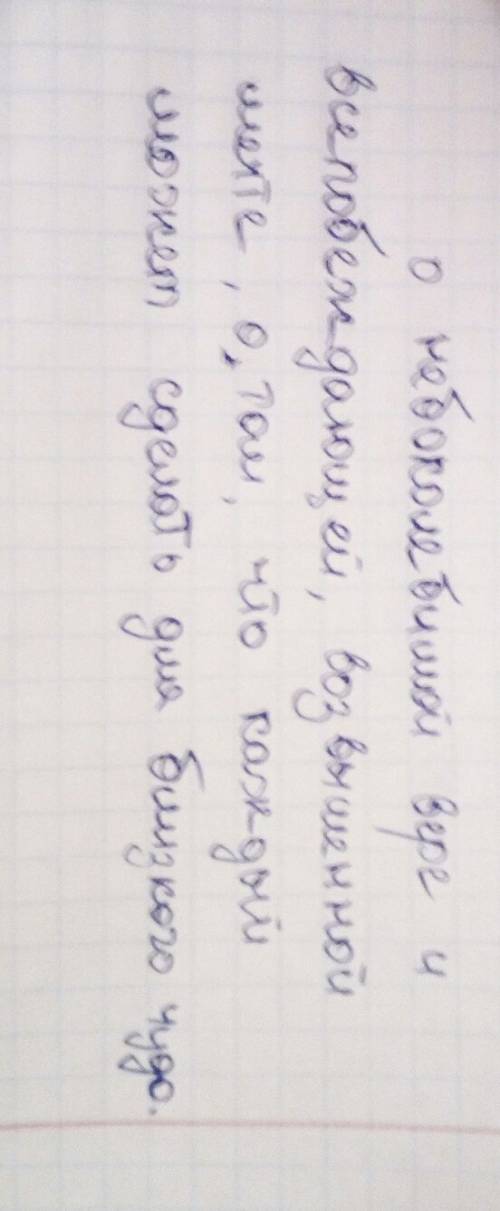 о непоколебимой вере и
всепобеждающей, возвышенной
мечте, о, том, что каждый
может сделать для близкого чудо.